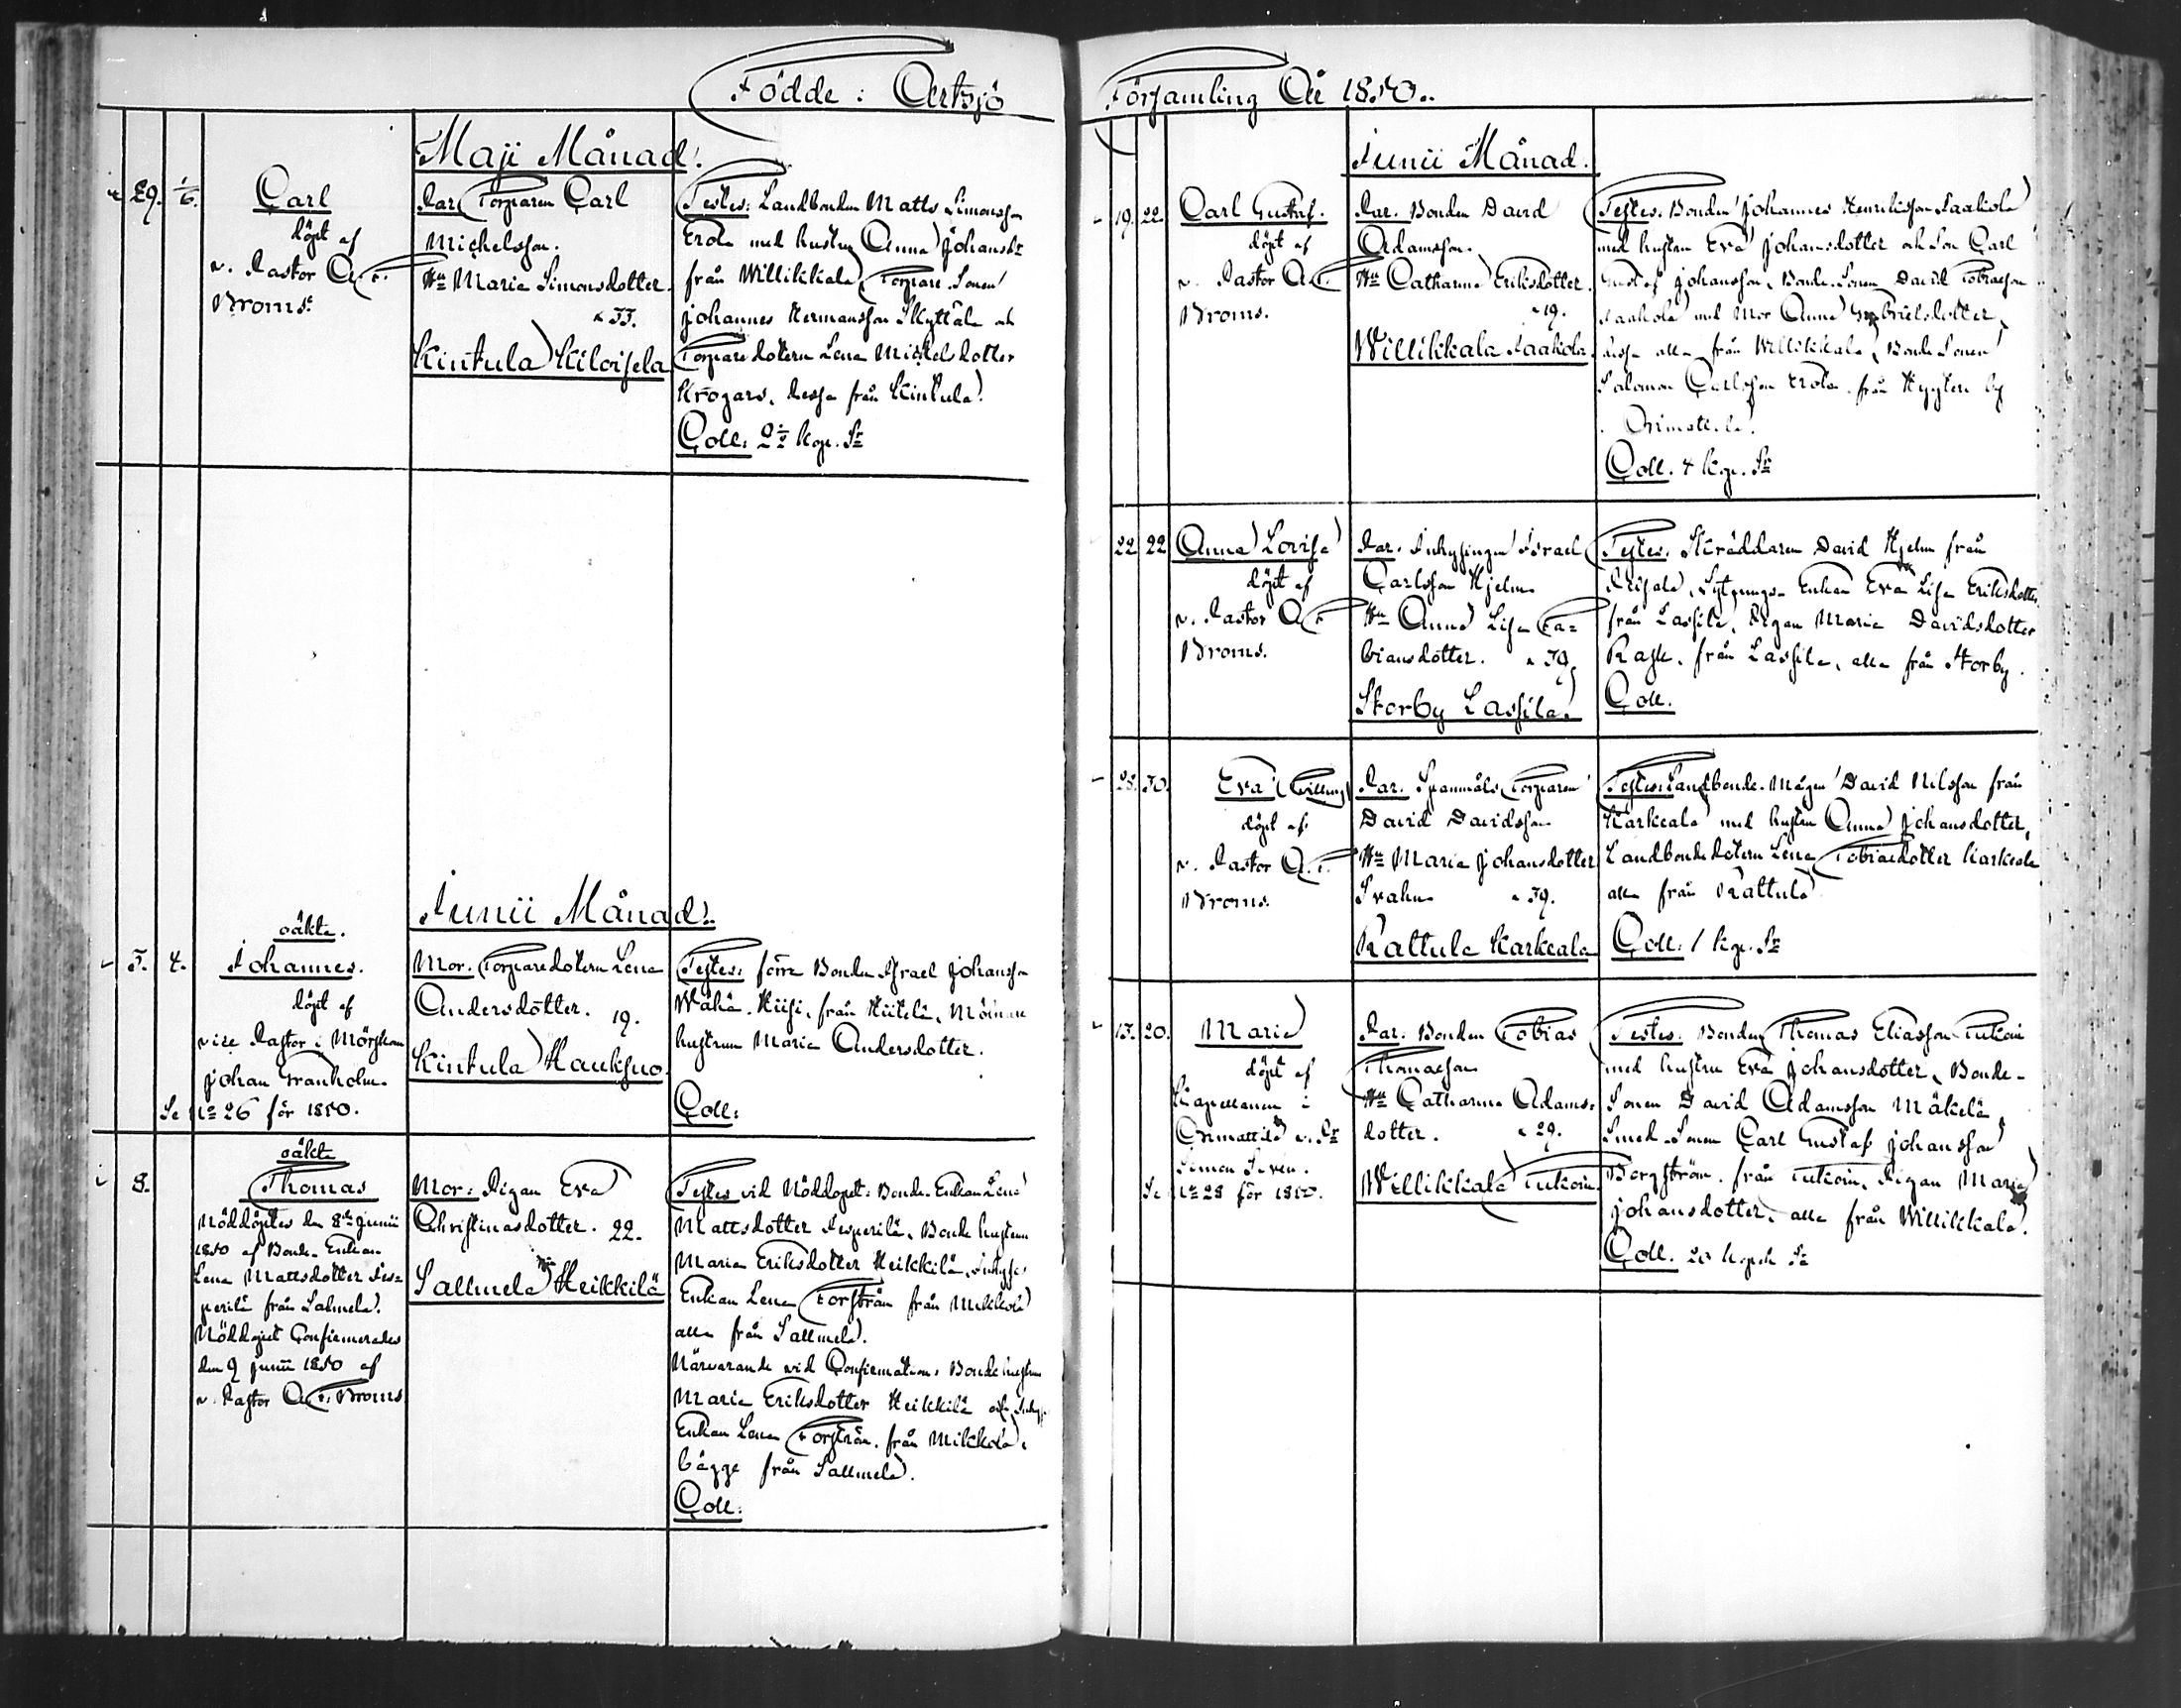 Födde i Artsjö
Maji Månad.
29. 1/6. Carl
döpt af
v. Pastor A. F.
Broms.
Par. Torparen Carl
Michelsson.
Hu Maria Simonsdotter
Kintula Kiloisela
Testes: Landbonden Matts Simonsson
Erola med hustru Anna Johansdr
från Willikkala, Torpare Sonen
Johannes Hermansson Skyttälä och
Torpare dotern Lena Michelsdotter
Krogars, dessa från Kintula.
Coll: 2½ kop. Sr
Junii Månad.
oäkta.
3. 4. Johannes.
döpt af
vice Pastor i Mörskom
Johan Granholm.
Se No 26 för 1850.
Mor. Torpare dotern Lena
Andersdotter. 19.
Kintula Hauksuo.
Testes: förra Bonden Israel Johansson
Wähä-Hiisi, från Hiitelä,
hustrun Maria Andersdotter.
Coll:
oäkta
8. Thomas
Nöddöptes den 8de Junii
1850 af Bonde-Enkan
Lena Mattsdotter Jes-
perilä från Salmela.
Nöddopet Confirmerades
den 9 Junii 1850 af
v. Pastor A. F. Broms
Mor: Pigan Eva
Christinasdotter. 22.
Sallmela Heikkilä
Testes vid Nöddopet: Bonde-Enkan Lena
Mattsdotter Jesperilä, Bonde hustrun
Maria Eriksdotter Heikkilä, Inhyse
Enkan Lena Forsström från Mikkola
alla från Sallmela.
Närvarande vid Confirmation: Bonde hustrun
Maria Eriksdotter Heikkilä och Inhyse
Enkan Lena Forsström, från Mikkola,
bägge från Sallmela.
Coll:
Församling År 1850.
Junii Månad.
19. 22. Carl Gustaf.
döpt af
v. Pastor A. F.
Broms.
Par. Bonden David
Adamsson.
Hu Catharina Eriksdotter.
Willikkala Paakola
Testes. Bonden Johannes Henriksson Paakola
med hustru Eva Johansdotter och Son Carl
Gustaf Johansson, Bonde-Sonen David Tobiasson
Paakola med Mor Anna Gabrielsdotter,
dessa alla från Willikkala, Bonde Sonen
Salomon Carlsson Erola från by
Orimattila.
Coll. 4 kop. Sr
22 22 Anna Lovisa
döpt af
v. Pastor A. F.
Broms.
Par. Inhysingen Israel
Carlsson Hjelm
Hu Anna Lisa Fa-
biansdotter.
Storby Lassila.
Testes. Skräddaren David Hjelm från
Enkan Eva Lisa Eriksdotter
från Lassila, Pigan Maria Davidsdotter
Rask, från Lassila, alla från Storby.
Coll.
28. 30. Eva (Tvilling)
döpt af
v. Pastor A. F.
Broms.
Par. Spanmåls Torparen
David Davidsson
Hu Maria Johansdotter
Svahn
Rattula Karkeala
Testes: Landbonde-Mågen David Nilsson från
Karkeala med hustru Anna Johansdotter,
Landbonde dotern Lena Tobiaedotter Karkeala
alla från Rattula
Coll: 1 kop. Sr
13. 20. Maria
döpt af
Kapellanen i
Orimattila v. Pr
Simon Siren.
Se No 28 för 1850.
Par. Bonden Tobias
Thomasson
Hu Catharina Adams-
dotter.
Willikkala Tutoin
Testes. Bonden Thomas Eliasson Tutoin
med hustru Eva Johansdotter, Bonde-
Sonen David Adamsson Mäkelä,
Smed-Sonen Carl Gustaf Johansson
Borgström, från Tutoin, Pigan Maria
Johansdotter, alla från Willikkala.
Coll. 20 kopek Sr